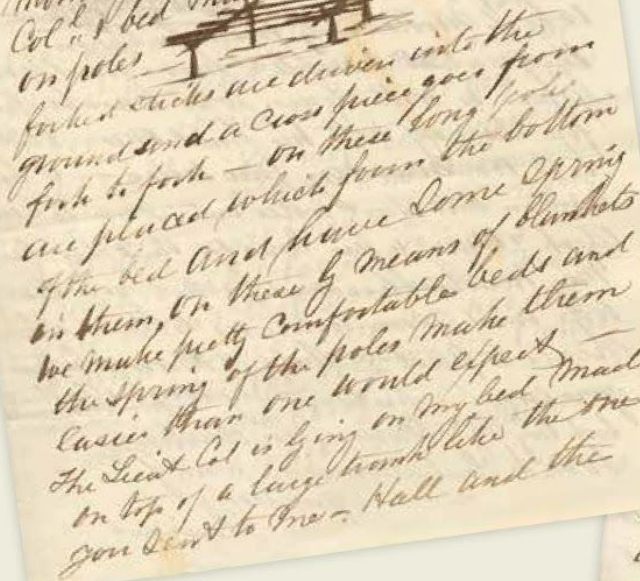 Col's bed
on poles
forked sticks are driven into the
ground and a cross piece goes from
fork to fork — on these long poles
are placed which form the bottom
of the bed and have some spring
in them, on these by means of blankets
we make pretty comfortable beds and
the spring of the poles make them
easier than one would expect —
The Lieut Col is lying on my bed made
on top of a large trunk like the one
you sent to me — Hall and the